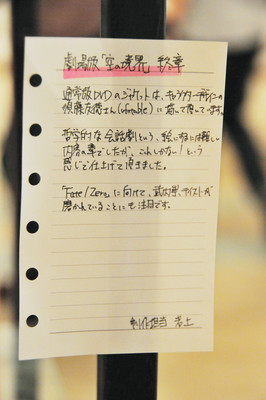 劇場版「空の境界」終章
通常版DVDのジャケットは、キャラクターデザインの
須藤友徳さん(ufotable)に描いて頂いています。
哲学的な会話劇という、絵にするには難しい
内容の章でしたが、これしかない！という
感じで仕上げて頂きました。
「Fate/Zero」に向けて、武内型、テイストが
磨かれていることにも注目です。
制作担当 岩上